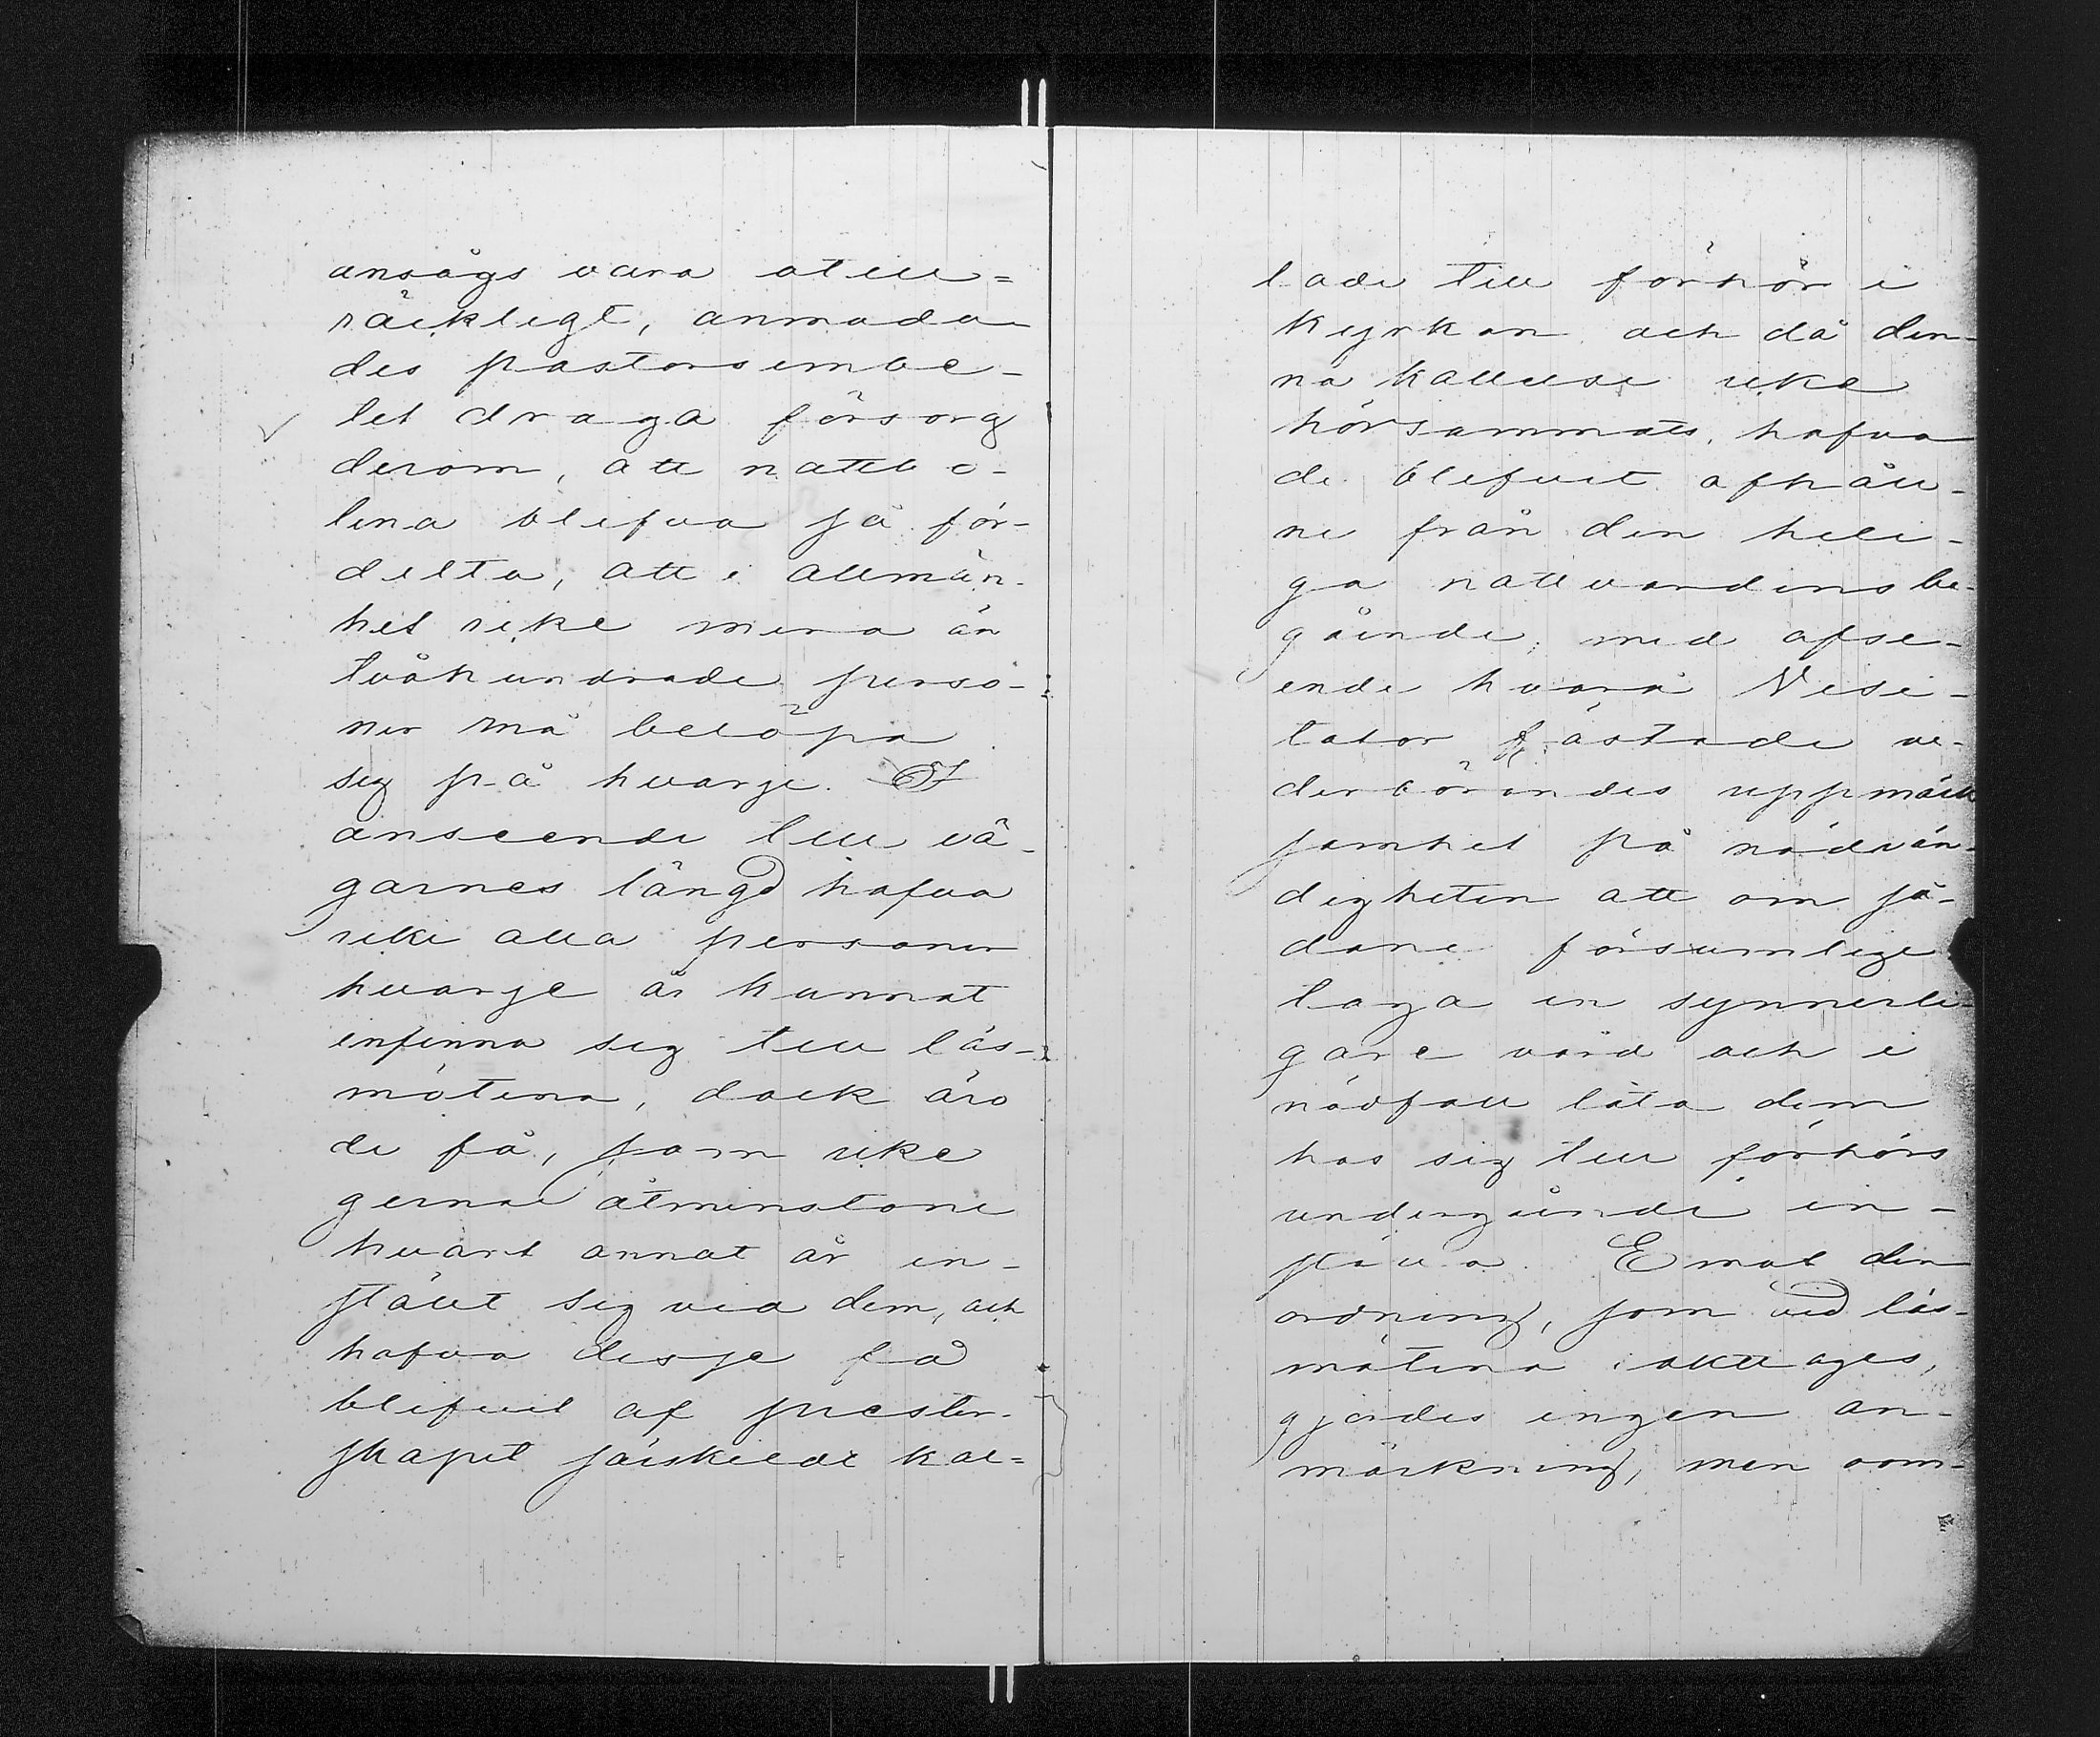 ansågs vara otill=
räckligt, anmoda-
des pastorsembe-
tet draga försorg
derom, att nattvo-
lena blifva så för-
delta, att i allmän-
het icke mera än
tvåhundrade perso-
ner må belöpa
sig på hvarje. I
anseende till vä-
garnes längd hafva
icke alla personer
hvarje år kunnat
infinna sig till läs-
mötena, dock äro
de få, som icke
gerna åtminstone
hvart annat år in-
stält sig vid dem, och
hafva desse få
blifvit af prester-
skapet särskildt kal=
lade till förhör i
kyrkan och då den-
na kallelse icke
hörsammats, hafva
de blifvit afhåll-
ne från den heli-
ga nattvardens be-
gående; med afse-
ende hvarå Visi-
tator fästade ve-
derbörandes uppmärk
samhet på nödvän-
digheten att om så-
dane försumlige
taga en synnerli-
gare vård och i
nödfall låta dem
hos sig till förhörs
undergående in-
ställa. Emot den
ordning, som vid läs-
mötena iakttages,
gjordes ingen an-
märkning, men om-